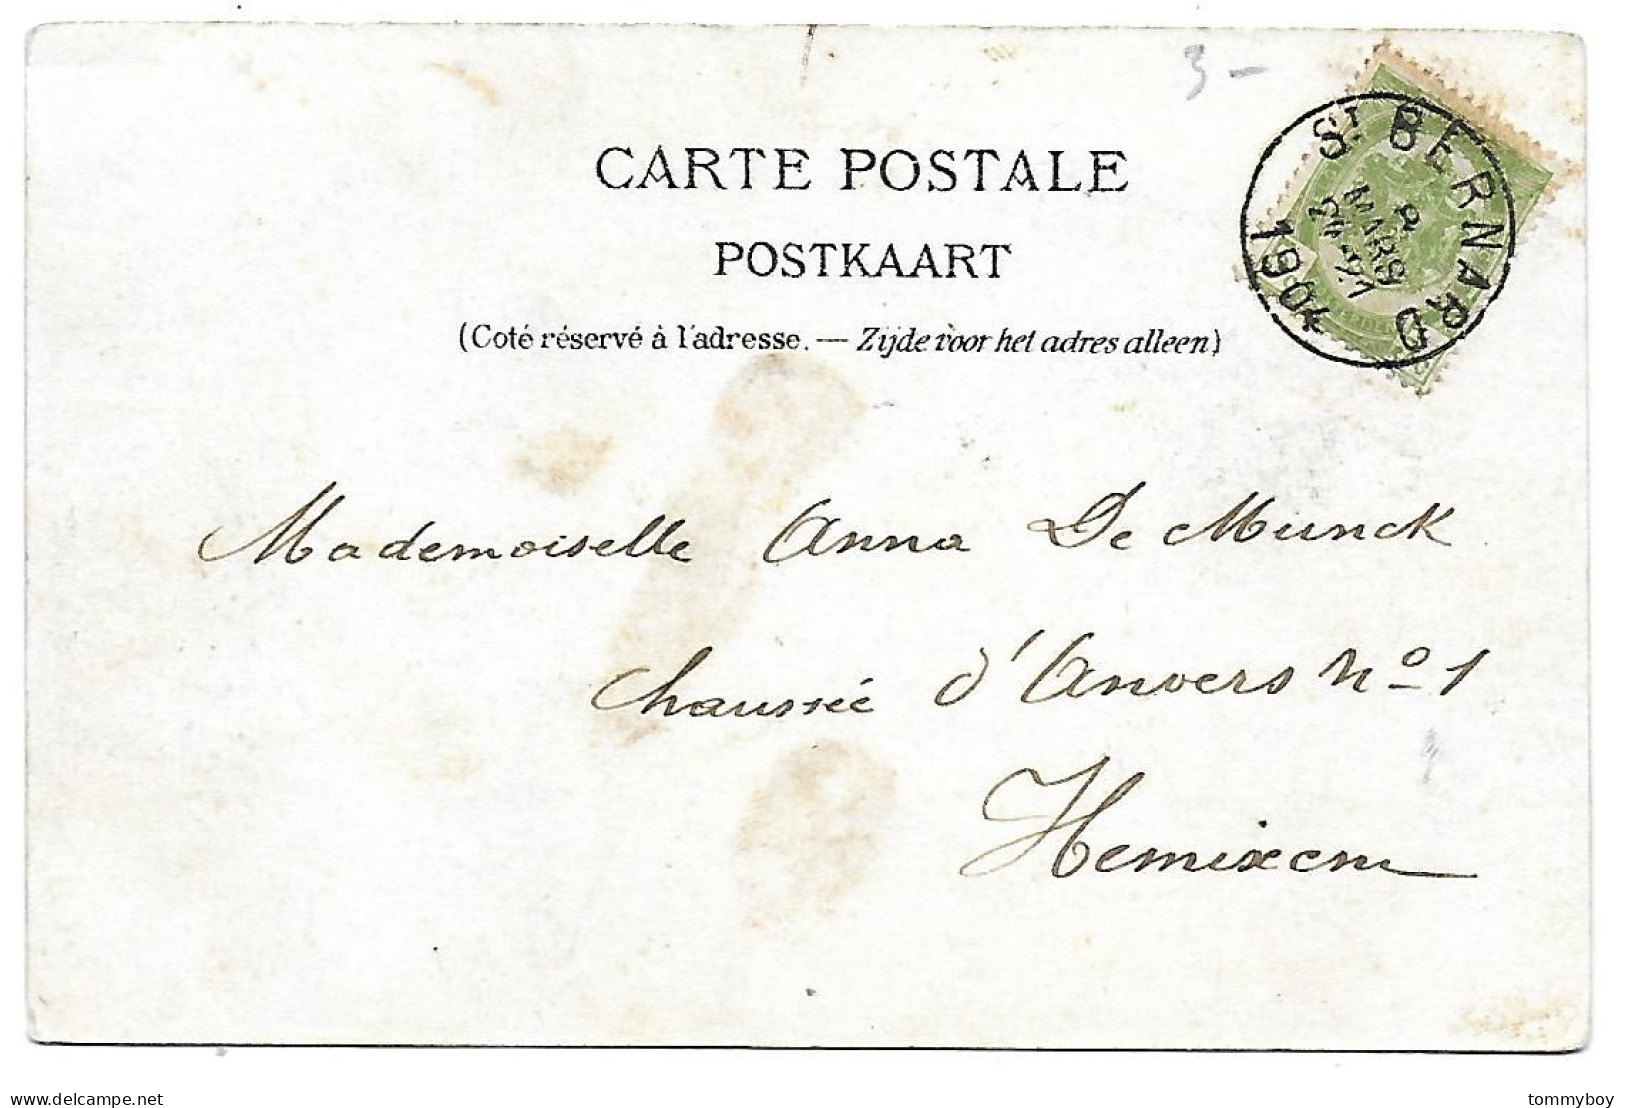 3 -
CARTE POSTALE
POSTKAART
(Coté réservé à l'adresse. — Zijde voor het adres alleen)
ST BERNARD
8
MARS
1904
Mademoiselle Anna De Munck
Chaussée d'Anvers No 1
Hemixem
delcampe.net
tommyboy